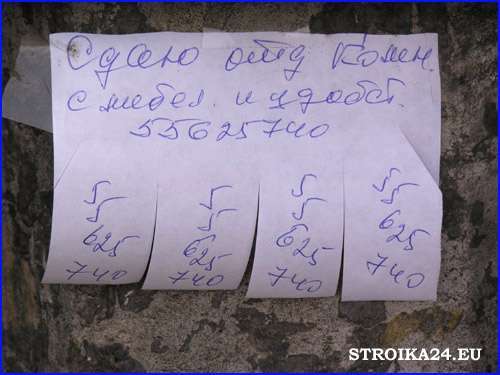 Сдаю отд комн.
с мебел. и удобст.
55625740
5
5
625
740
5
5
625
740
5
5
625
740
5
5
625
740
STROIKA24.EU